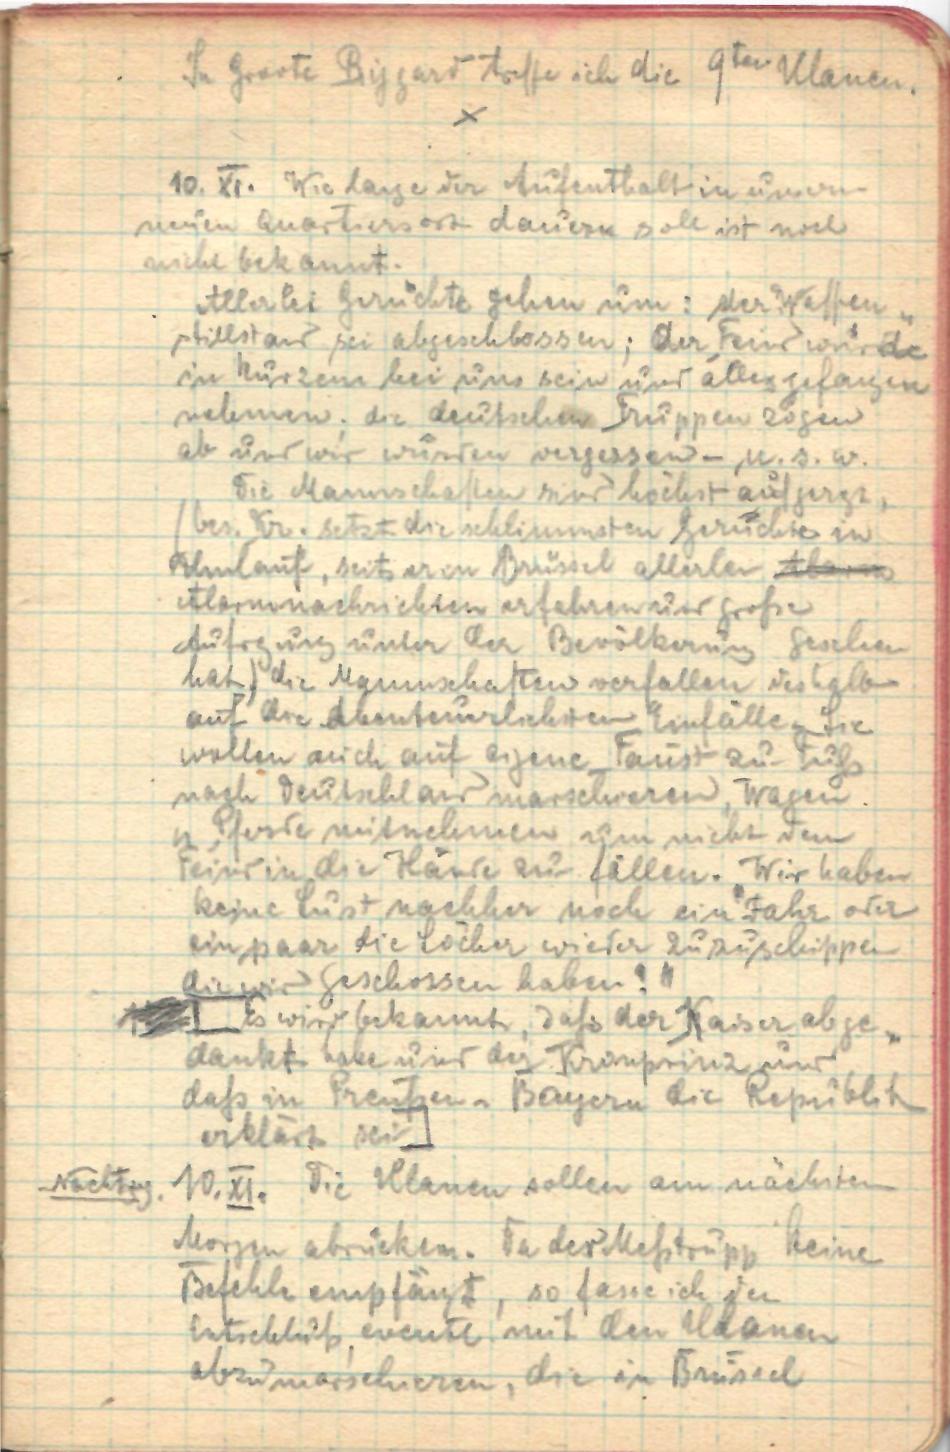 In Groote Bijgard treffe ich die 9ten Ulanen.
×
10. XI. Wie lange der Aufenthalt in unserm
neuen Quartiersort dauern soll ist noch
nicht bekannt.
Allerlei Gerüchte gehen um: der Waffen„
stillstand sei abgeschlossen; der Feind würde
in Kürzem bei uns sein und alles gefangen
nehmen. die deutschen Truppen zögen
ab und wir würden vergessen – u. s. w.
Die Mannschaften sind höchst aufgeregt,
(bes. Kr. setzt die schlimmsten Gerüchte in
Umlauf, seit er in Brüssel allerlei
Alarmnachrichten erfahren und große
Aufregung unter der Bevölkerung gesehen
hat) die Mannschaften verfallen deshalb
auf die abenteuerlichsten Einfälle, sie
wollen sich auf eigene Faust zu Fuß
nach Deutschland marschieren, Wagen
u. Pferde mitnehmen um nicht dem
Feind in die Hände zu fallen. Wir haben
keine Lust nachher noch ein Jahr oder
ein paar die Löcher wieder zuzuschippen
die wir geschossen haben!"
[Es wird bekannt, daß der Kaiser abge„
dankt habe und der Kronprinz und
daß in Preußen u. Bayern die Republik
erklärt sei]
Nachtrag. 10. XI. Die Ulanen sollen am nächsten
Morgen abrücken. Da der Meßtrupp keine
Befehle empfängt, so fasse ich den
Entschluß, eventl. mit den Ulanen
abzumarschieren, die in Brüssel